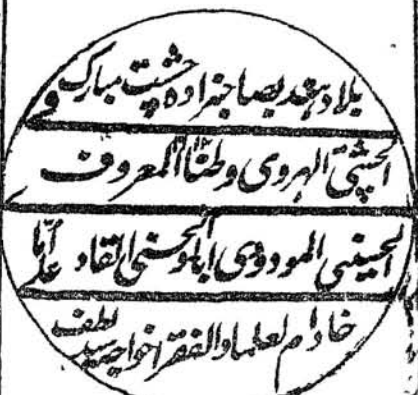 بلاد ہند بصاحبزادہ چشت مبارک
الچشتی الہروی وطناً المعروف فی
الحسینی المودودی اباً والحسنی القادر اُمّاً
خادم العلماء والفقراء خواجہ سید لطف علی